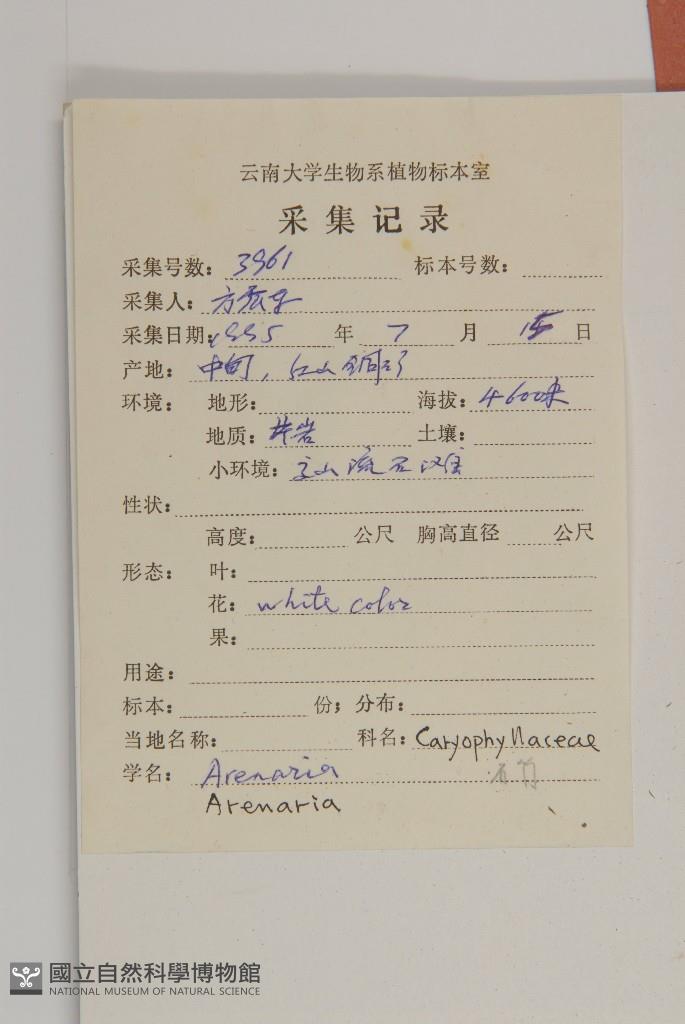 云南大学生物系植物标本室
采集记录
采集号数: 3961 标本号数:
采集人: 方
采集日期: 1995 年 7 月 15 日
产地: 中甸, 红山铜矿
环境: 地形: 海拔: 4600米
地质: 岩 土壤:
小环境: 高山流石滩
性状:
高度: 公尺 胸高直径 公尺
形态: 叶:
花: white color
果:
用途:
标本: 份; 分布:
当地名称: 科名: Caryophyllaceae
学名: Arenaria
石竹
Arenaria
國立自然科學博物館
NATIONAL MUSEUM OF NATURAL SCIENCE